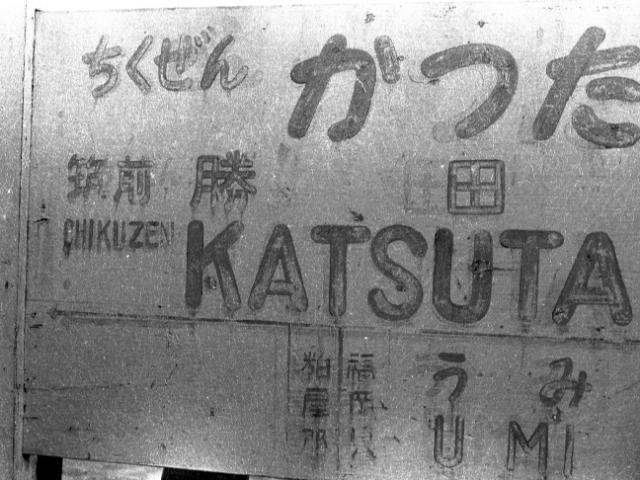 ちくぜん かつた
筑前 勝田
CHIKUZEN KATSUTA
福岡県
粕屋郡
うみ
UMI